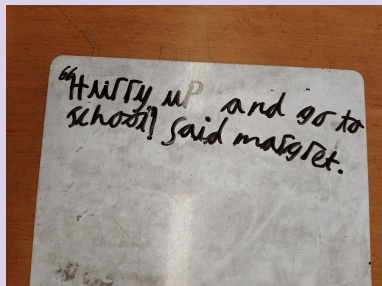 “Hurry up and go to
school! said margret.